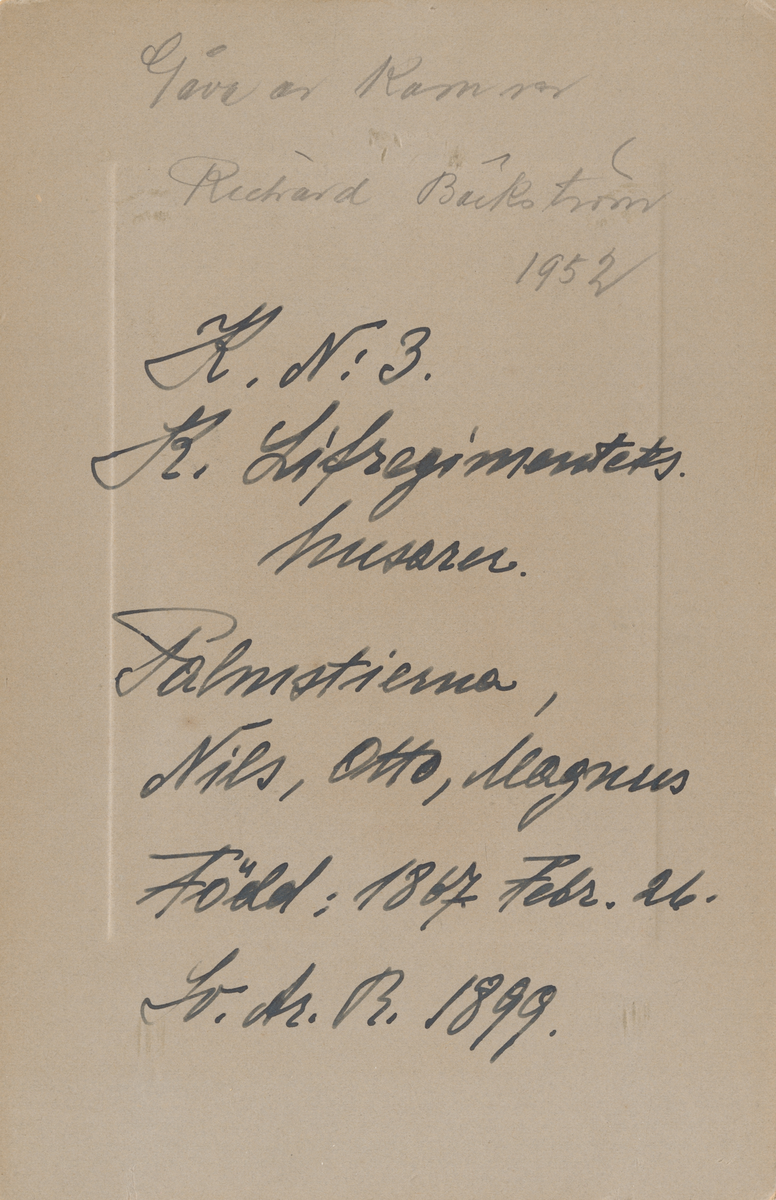 Gåva av Kamrer
Richard Bäckström
1952
K. N: 3.
K. Lifregimentets.
husarer.
Palmstierna,
Nils, Otto, Magnus
Född: 1867 Febr. 26.
Sv. Ar. R. 1899.